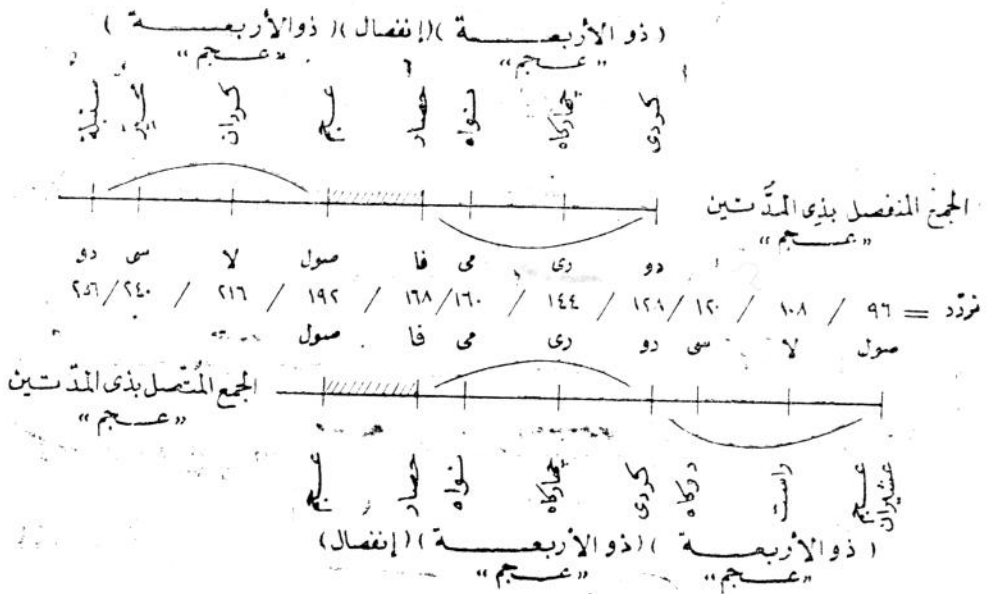 ( ذو الأربعة ) (إنفصال) ( ذو الأربعة )
«عجم» «عجم»
كردى چهاركاه نواه حصار عجم كردان سنبلة
الجمع المنفصل بذى المدّتين
«عجم»
دو رى مى فا صول لا سى دو
تردّد = ٩٦ / ١٠٨ / ١٢٠ / ١٢٨ / ١٤٤ / ١٦٠ / ١٦٨ / ١٩٢ / ٢١٦ / ٢٤٠ / ٢٥٦
صول لا سى دو رى مى فا صول
الجمع المُتّصل بذى المدّتين
«عجم»
عجم عشيران راست دوكاه كردى چهاركاه نواه حصار عجم
( ذو الأربعة ) ( ذو الأربعة ) (إنفصال)
«عجم» «عجم»